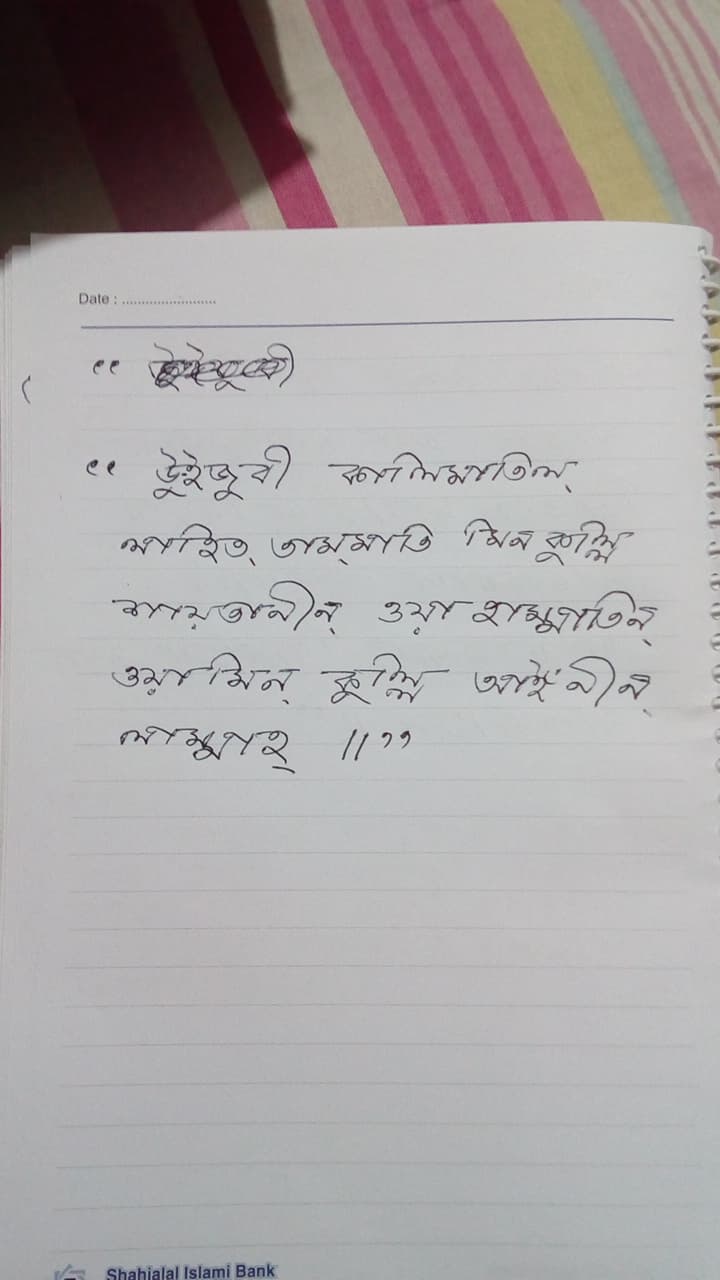 Date : ........................
“
“ উুইজুবী কালিমাতিল্
লাহিত্ তাম্মাতি মিন কুল্লি
শায়তানীন্ ওয়া হাম্মাতিন্
ওয়া মিন্ কুল্লি আইনীন্
লাম্মাহ্ ॥”
Shahjalal Islami Bank